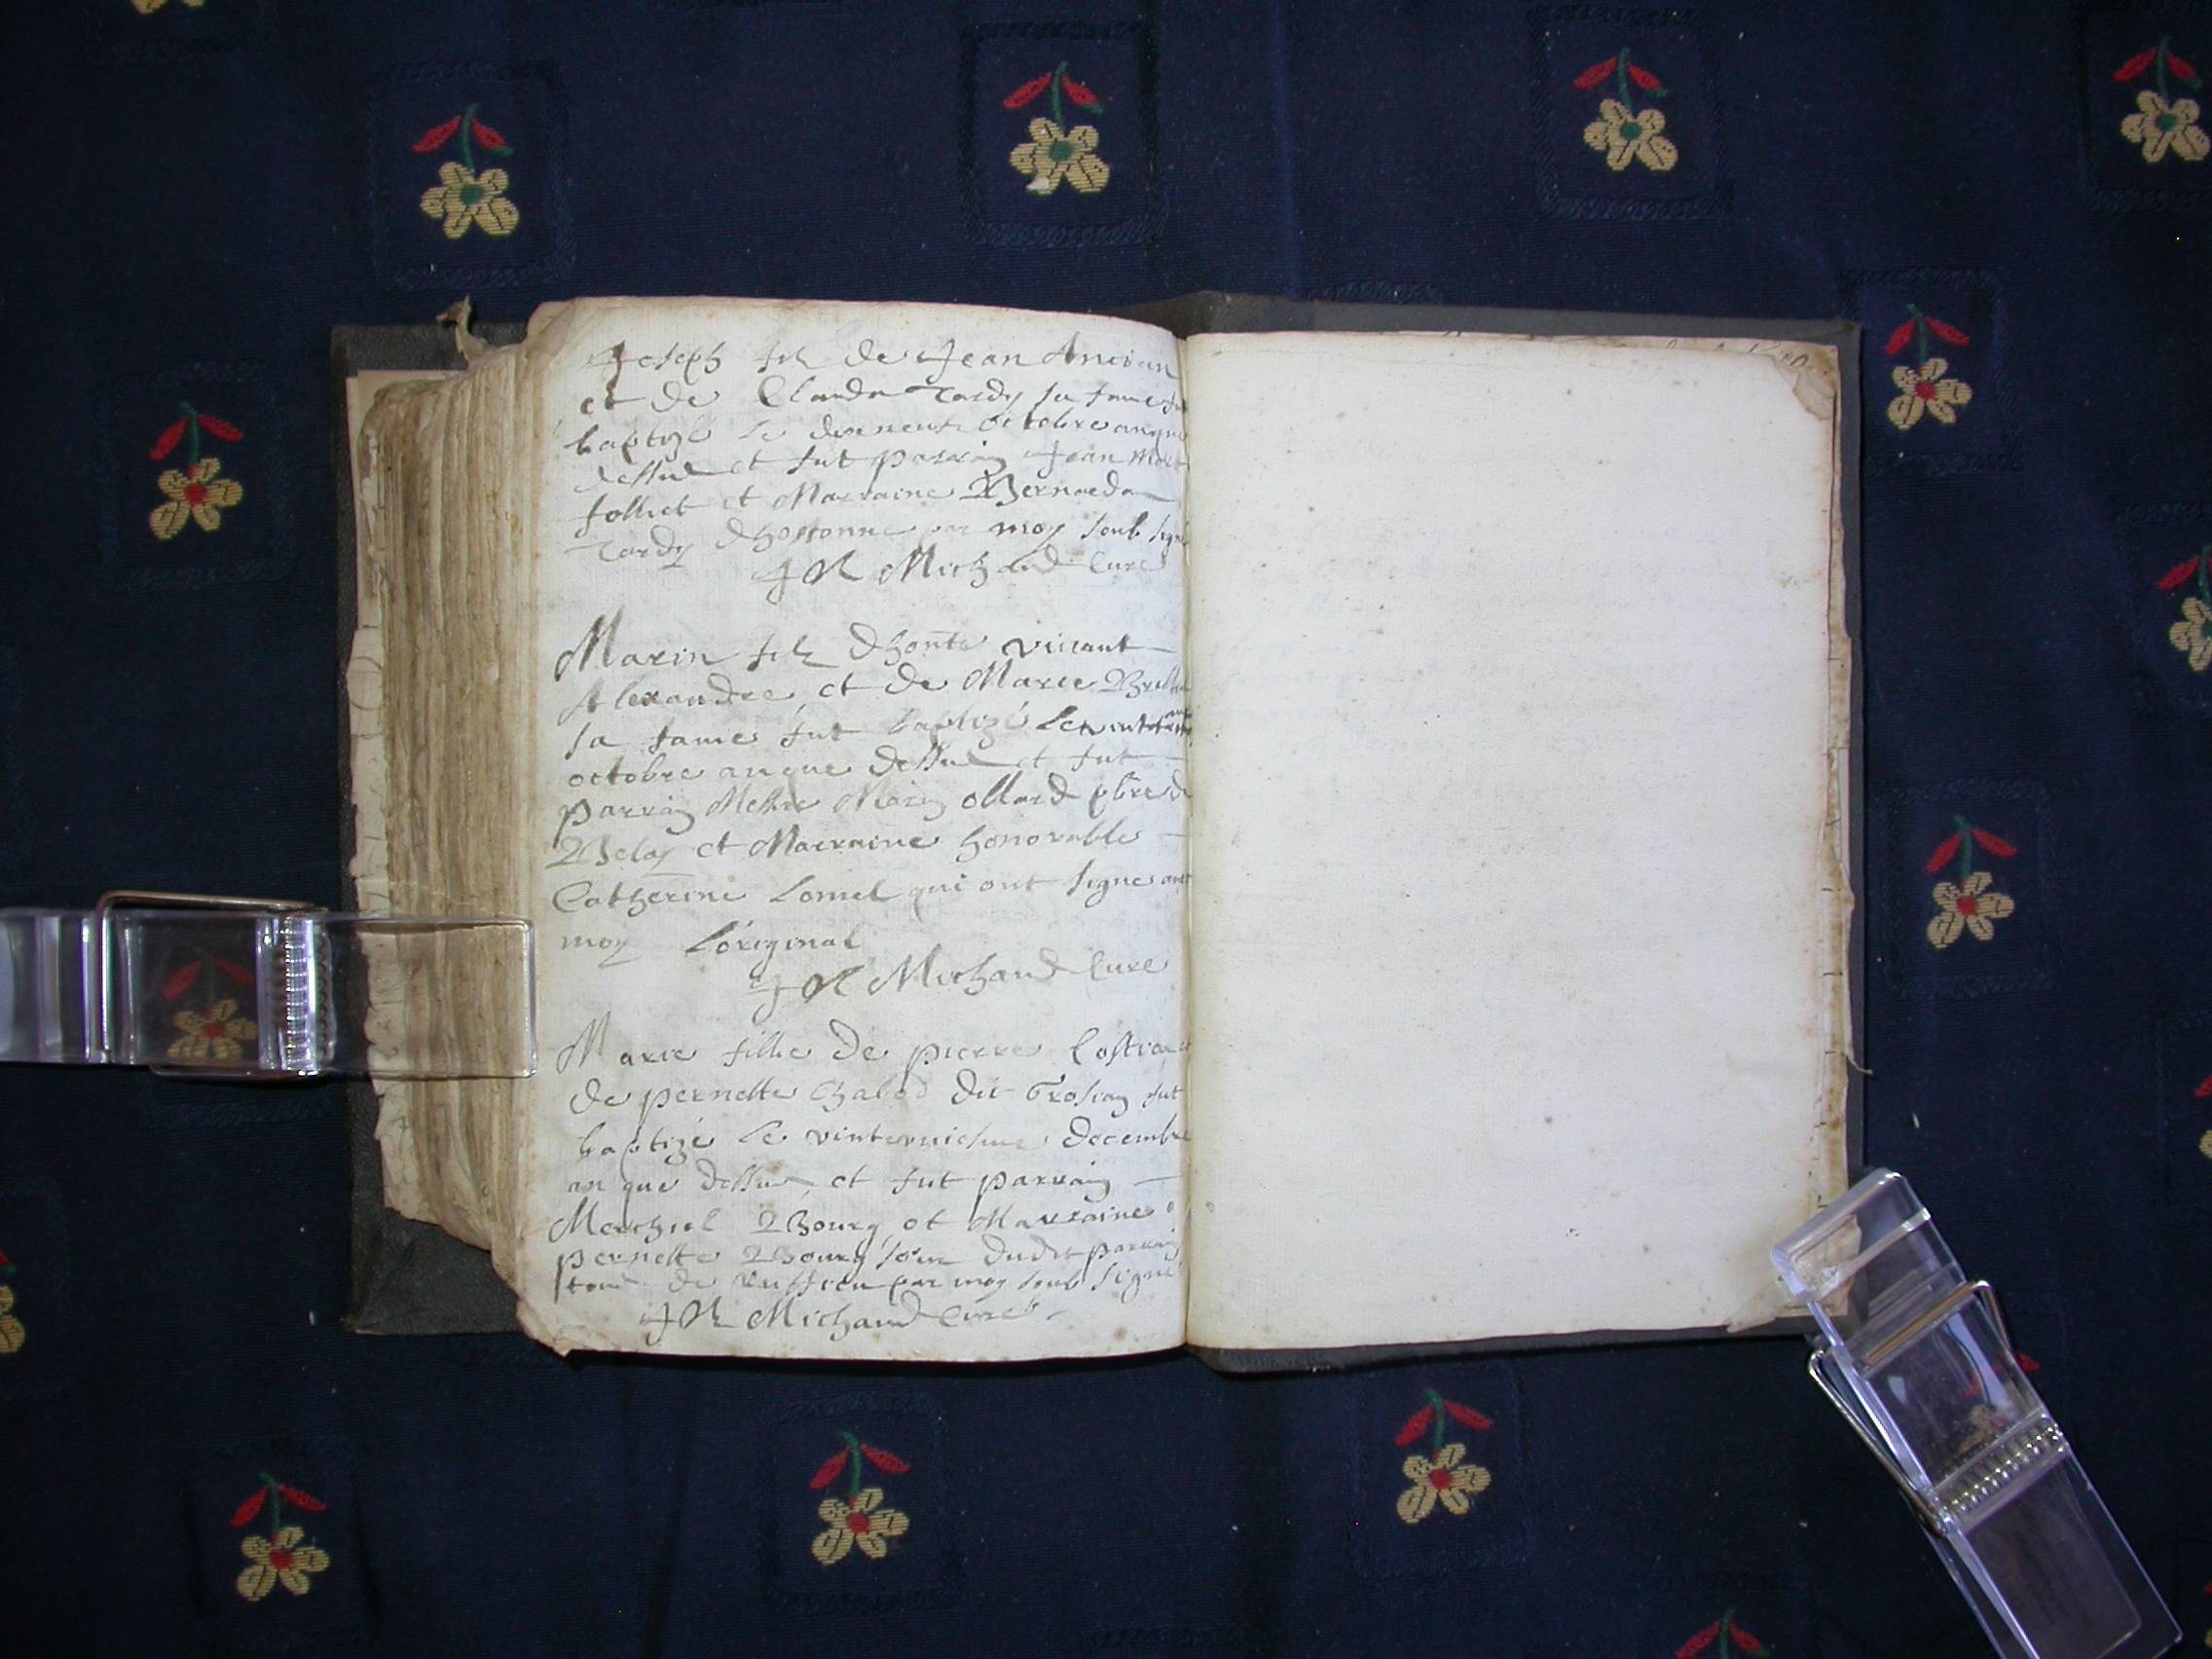 Joseph filz de Jean Ancian
et de Clauda Tardy sa fame fut
baptizé le dixneuf octobre an que
dessus et fut parrain Jean
folliet et Marraine Bernarda
Tardy dhostonne par moy soub signé
Michaud Curé
Marin filz dhonte vincent
Alexandre et de Marie
sa fame fut baptizé le
octobre an que dessus et fut
parrain Messre Marin ollard pbre de
Belay et Marraine honorable
Catherine Lomel qui ont signe avec
moy Loriginal
Michaud Cure
Marie fille de pierre Costia et
de pernette Chabod dit Grosian fut
baptizé le decembre
an que dessus et fut parrain
Merchiol Bourg et Marraine
pernette Bourg soeur dudit parrain
tous de Ruffieu par moy soub signé
Michaud Curé